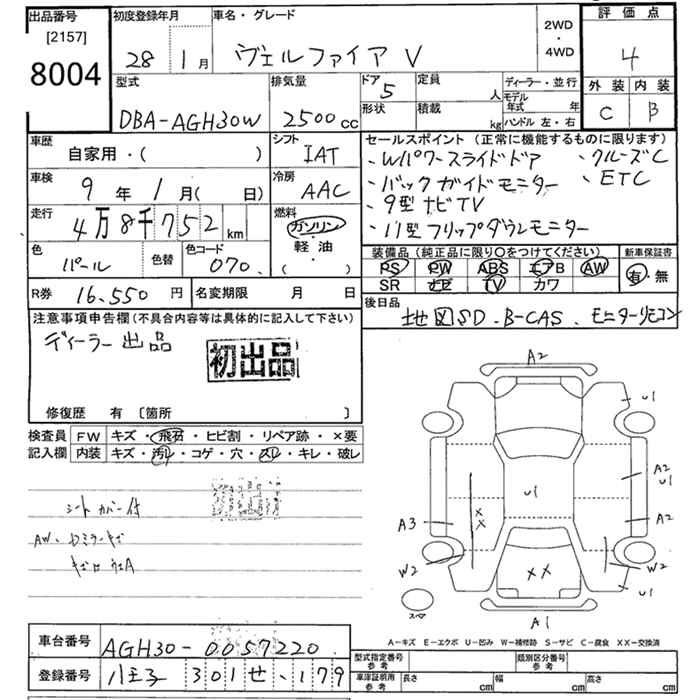 出品番号
[2157]
8004
初度登録年月
28 1月
車名・グレード
ヴェルファイア V
2WD
・
4WD
評価点
4
外装 内装
C B
型式
DBA-AGH30W
排気量
2500cc
ドア
5
形状
定員
人
積載
kg
ディーラー・並行
モデル年式 年
ハンドル 左・右
車歴
自家用・( )
シフト
IAT
車検
9年 1月( 日)
冷房
AAC
走行
4万8千752km
燃料
ガソリン・
軽油・
( )
色
パール
色替
色コード
070
R券 16.550円
名変期限 月 日
セールスポイント(正常に機能するものに限ります)
・Wパワースライドドア ・クルーズC
・バックガイドモニター ・ETC
・9型ナビTV
・11型フリップダウンモニター
装備品(純正品に限り○をつけてください)
PS PW ABS エアB AW
SR ナビ TV カワ
新車保証書
有・無
後日品
地図SD. B-CAS. モニターリモコン
注意事項申告欄(不具合内容等は具体的に記入して下さい)
ディーラー出品
初出品
修復歴 有〔箇所 〕
検査員
記入欄
FW キズ・飛石・ヒビ割・リペア跡・×要
内装 キズ・汚レ・コゲ・穴・スレ・キレ・破レ
初出品
シートカバー付
A2
U1
A2
U1
U1
A3
A2
XX
W2
W2
XX
U1
A1
A-キズ E-エクボ U-凹み W-補修跡 S-サビ C-腐食 XX-交換済
車台番号 AGH30-0057220
登録番号 八王子 301 せ・179
型式指定番号
参考
類別区分番号
参考
車庫証明用
参考
長さ cm 幅 cm 高さ cm